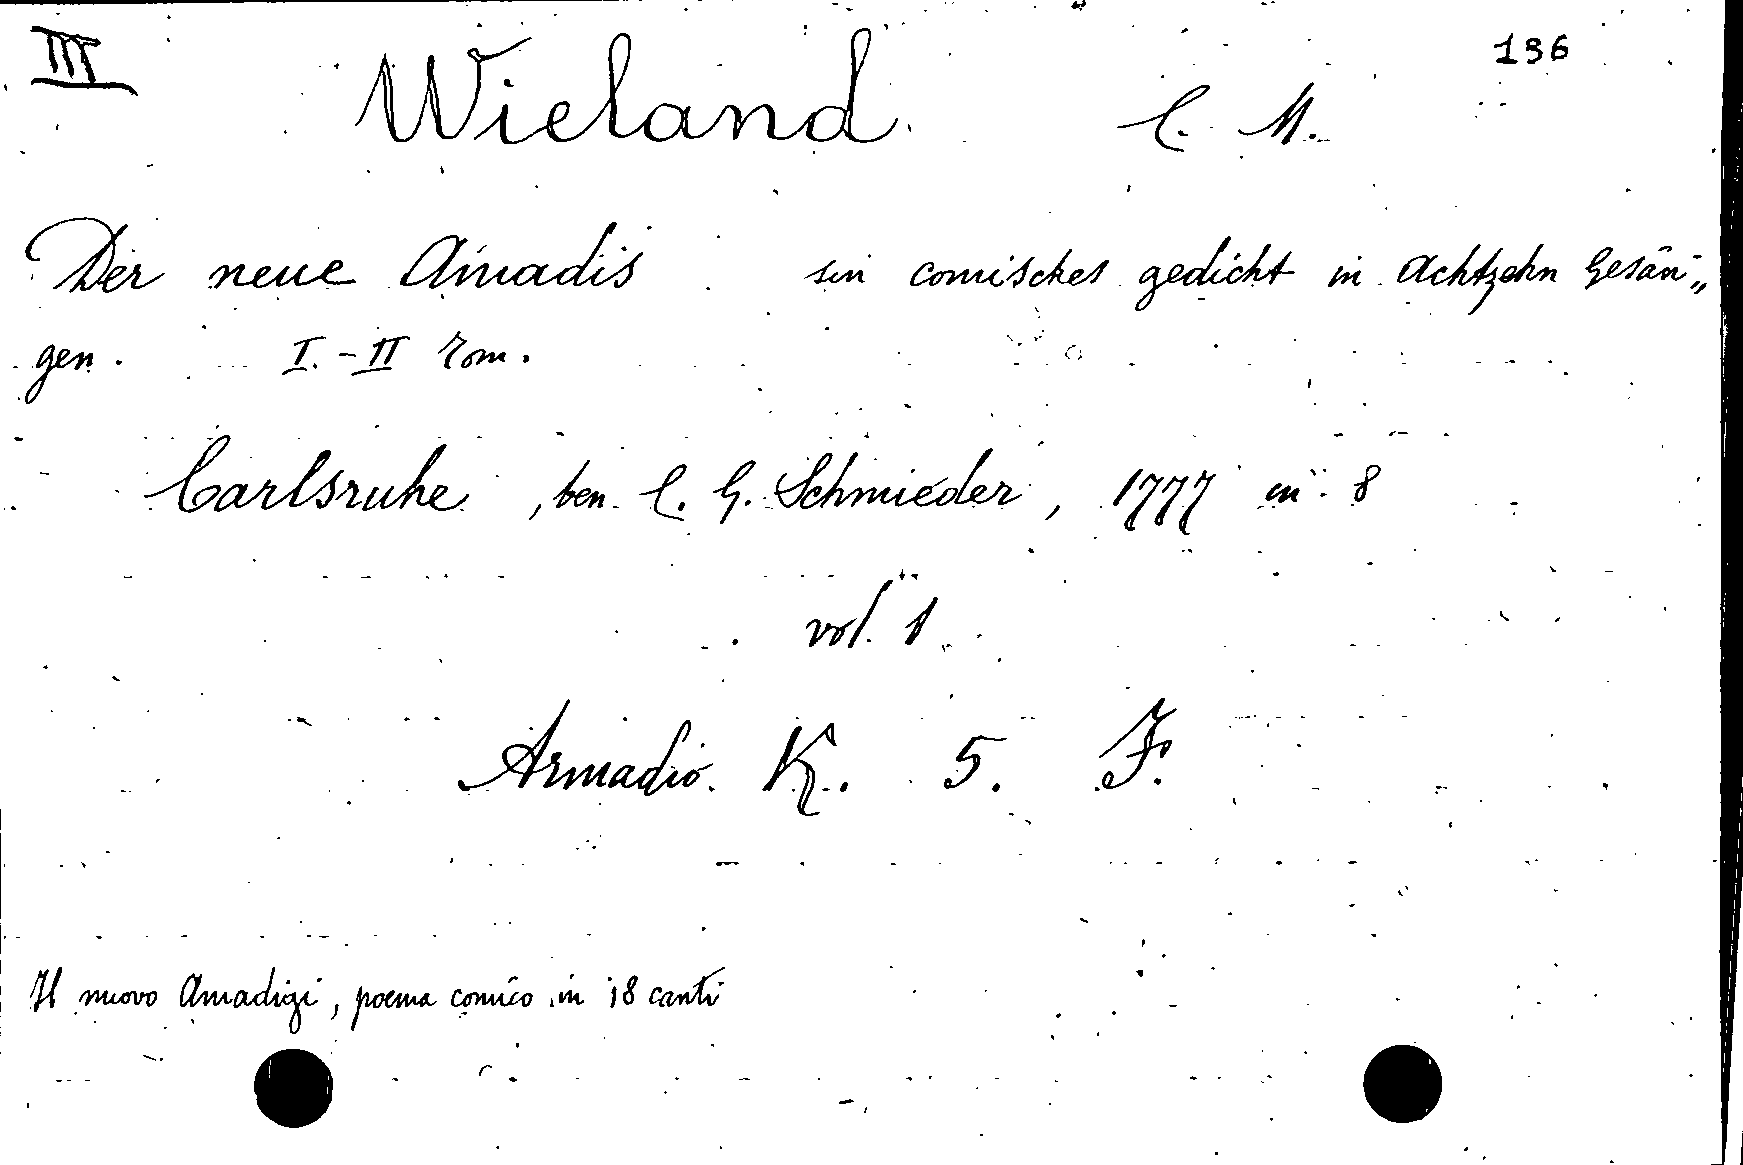 III
136
Wieland C. M.
Der neue Amadis ein comisches gedicht in achtzehn Gesän„
gen. I.-II Tom.
Carlsruhe, ben C. G. Schmieder, 1777 in 8
vol. 1
Armadio K. 5. F.
Il nuovo Amadigi, poema comico in 18 canti